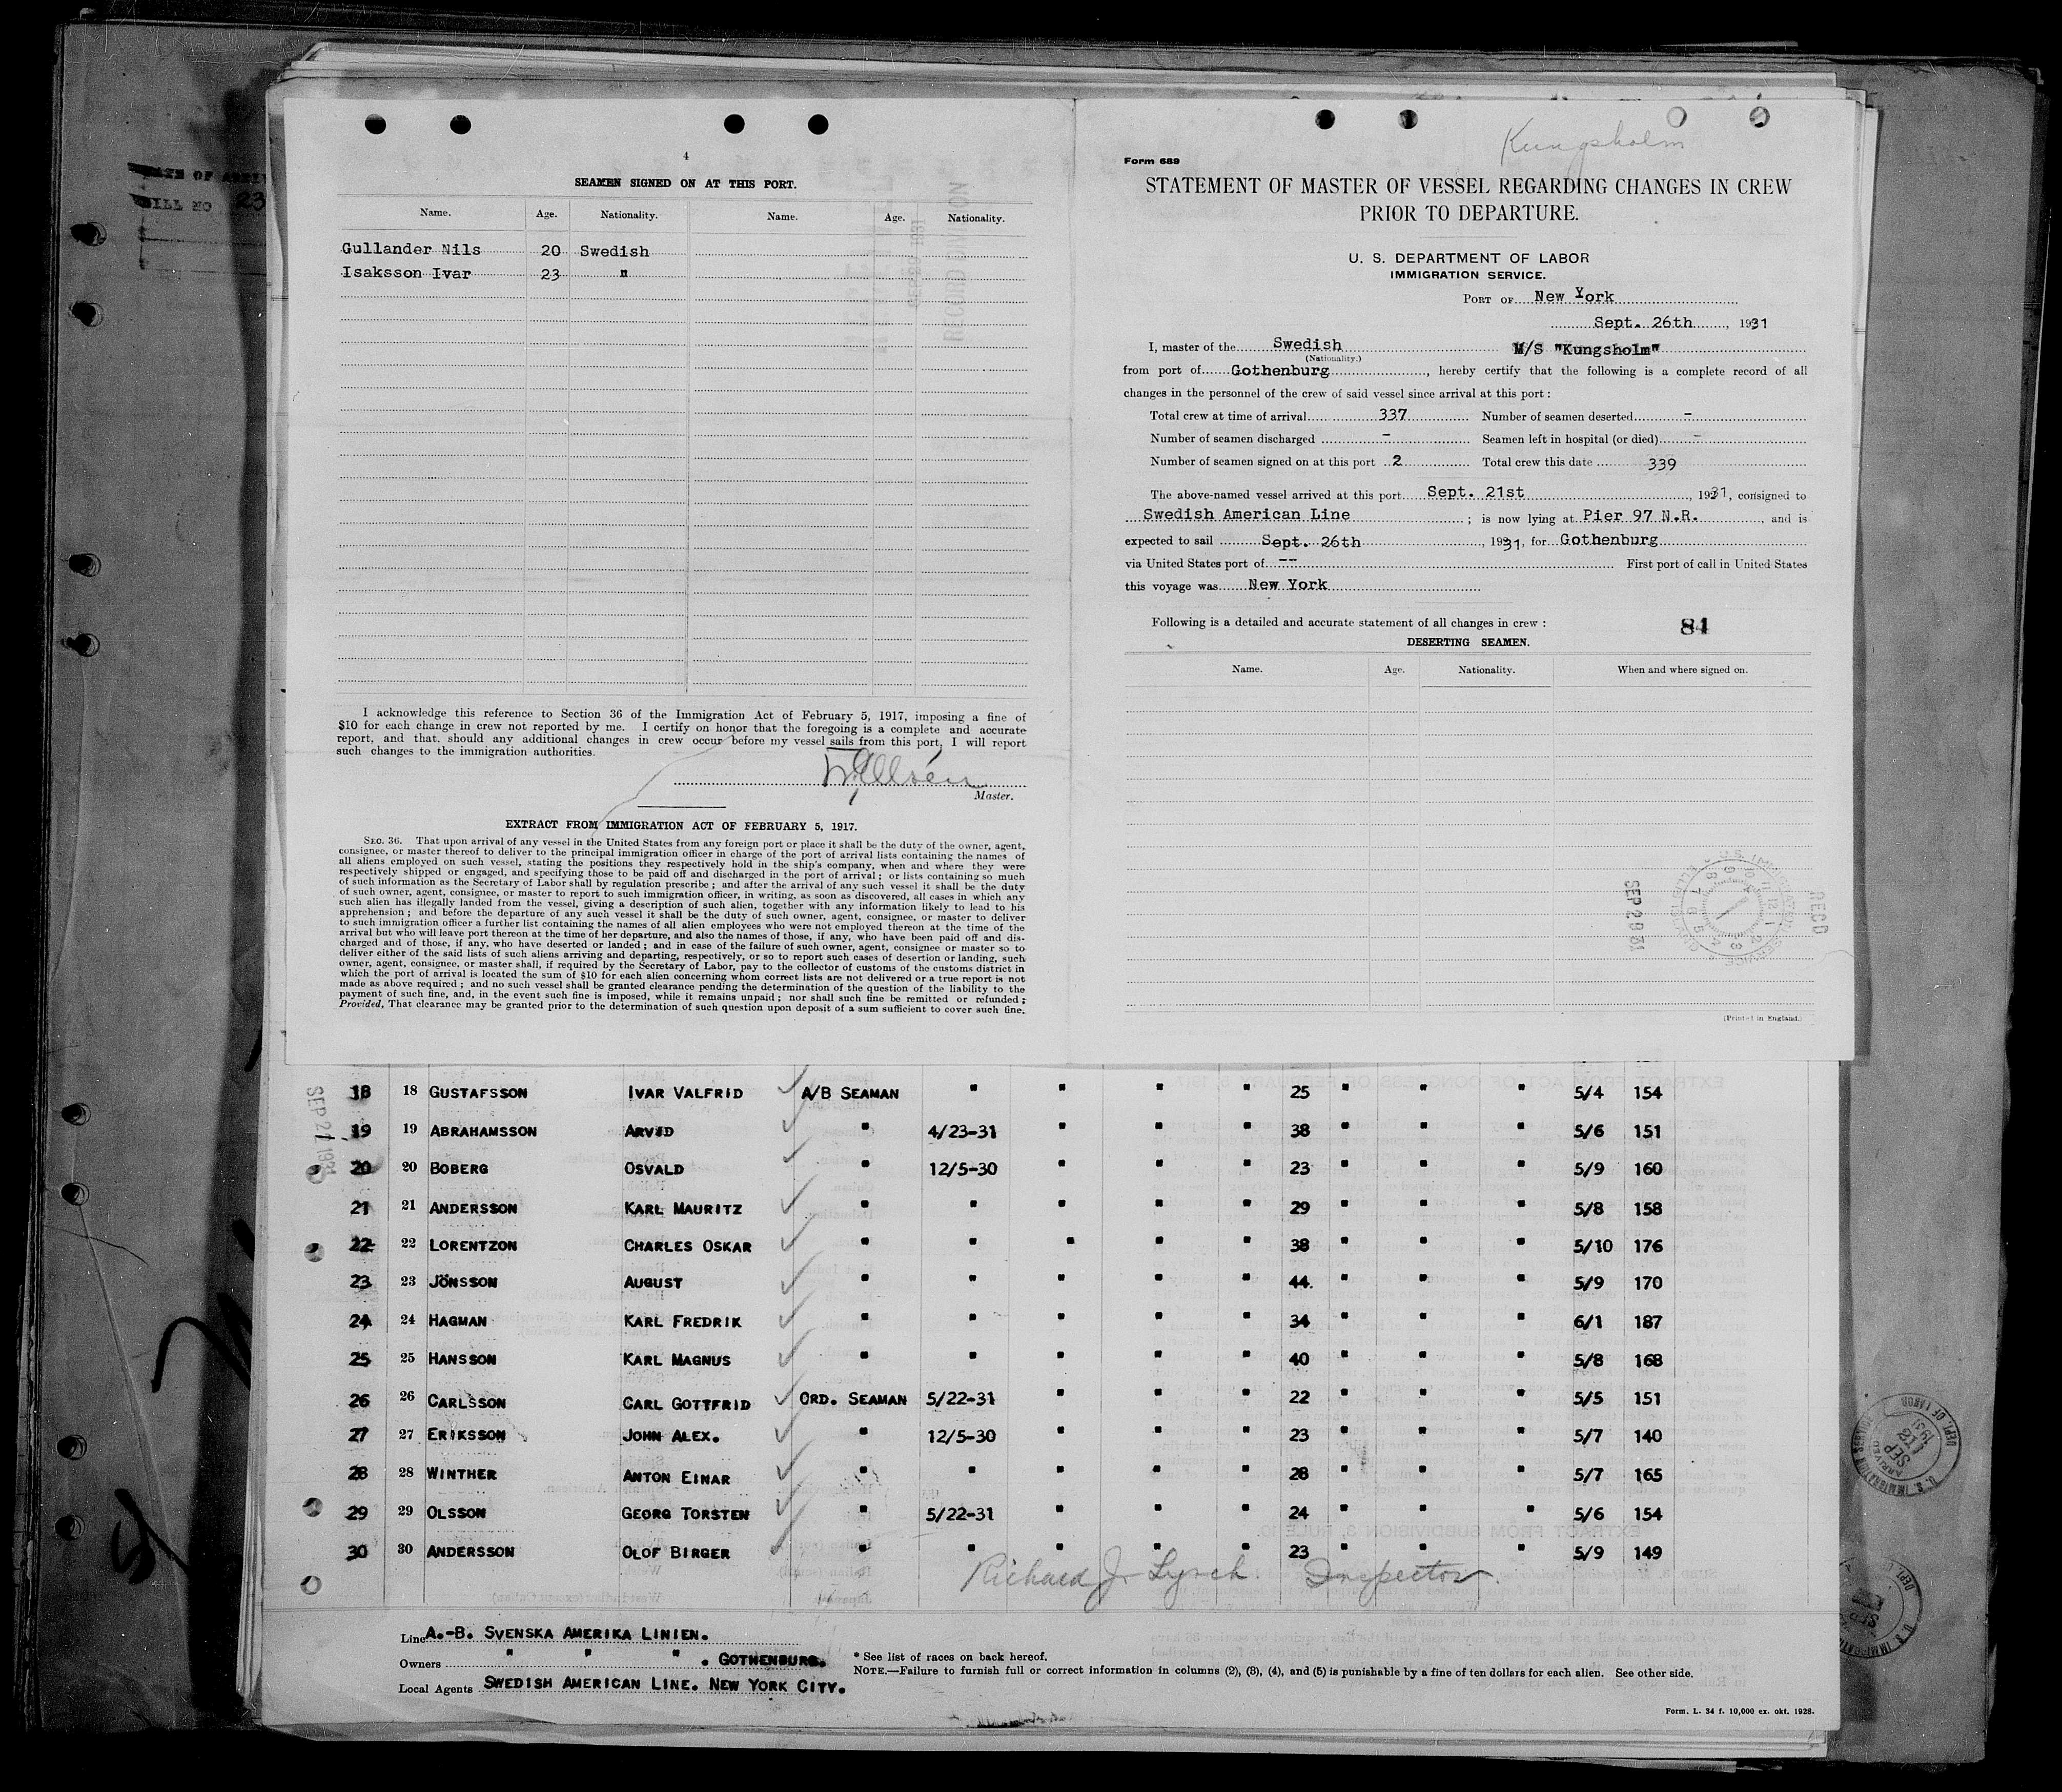 DATE OF
BILL NO 23
4
SEAMEN SIGNED ON AT THIS PORT.
Name. Age. Nationality. Name. Age. Nationality.
Gullander Nils 20 Swedish
Isaksson Ivar 23 "
I acknowledge this reference to Section 36 of the Immigration Act of February 5, 1917, imposing a fine of
$10 for each change in crew not reported by me. I certify on honor that the foregoing is a complete and accurate
report, and that. should any additional changes in crew occur before my vessel sails from this port, I will report
such changes to the immigration authorities.
Master.
EXTRACT FROM IMMIGRATION ACT OF FEBRUARY 5, 1917.
SEC. 36. That upon arrival of any vessel in the United States from any foreign port or place it shall be the duty of the owner, agent,
consignee, or master thereof to deliver to the principal immigration officer in charge of the port of arrival lists containing the names of
all aliens employed on such vessel, stating the positions they respectively hold in the ship's company, when and where they were
respectively shipped or engaged, and specifying those to be paid off and discharged in the port of arrival; or lists containing so much
of such information as the Secretary of Labor shall by regulation prescribe; and after the arrival of any such vessel it shall be the duty
of such owner, agent, consignee, or master to report to such immigration officer, in writing, as soon as discovered, all cases in which any
such alien has illegally landed from the vessel, giving a description of such alien, together with any information likely to lead to his
apprehension; and before the departure of any such vessel it shall be the duty of such owner, agent, consignee, or master to deliver
to such immigration officer a further list containing the names of all alien employees who were not employed thereon at the time of the
arrival but who will leave port thereon at the time of her departure, and also the names of those, if any, who have been paid off and dis-
charged and of those, if any, who have deserted or landed; and in case of the failure of such owner, agent, consignee or master so to
deliver either of the said lists of such aliens arriving and departing, respectively, or so to report such cases of desertion or landing, such
owner, agent, consignee, or master shall, if required by the Secretary of Labor, pay to the collector of customs of the customs district in
which the port of arrival is located the sum of $10 for each alien concerning whom correct lists are not delivered or a true report is not
made as above required; and no such vessel shall be granted clearance pending the determination of the question of the liability to the
payment of such fine, and, in the event such fine is imposed, while it remains unpaid; nor shall such fine be remitted or refunded;
Provided, That clearance may be granted prior to the determination of such question upon deposit of a sum sufficient to cover such fine.
Kungsholm
Form 689
STATEMENT OF MASTER OF VESSEL REGARDING CHANGES IN CREW
PRIOR TO DEPARTURE.
U. S. DEPARTMENT OF LABOR
IMMIGRATION SERVICE.
PORT OF New York
Sept. 26th, 1931
I, master of the Swedish M/S "Kungsholm"
(Nationality.)
from port of Gothenburg, hereby certify that the following is a complete record of all
changes in the personnel of the crew of said vessel since arrival at this port:
Total crew at time of arrival 337 Number of seamen deserted -
Number of seamen discharged - Seamen left in hospital (or died) -
Number of seamen signed on at this port 2 Total crew this date 339
The above-named vessel arrived at this port Sept. 21st, 1931, consigned to
Swedish American Line; is now lying at Pier 97 N.R., and is
expected to sail Sept. 26th, 1931, for Gothenburg
via United States port of -- First port of call in United States
this voyage was New York
Following is a detailed and accurate statement of all changes in crew: 84
DESERTING SEAMEN.
Name. Age. Nationality. When and where signed on.
SEP 29 31
REC'D
(Printed in England.)
SEP 21 1931
18 18 GUSTAFSSON IVAR VALFRID A/B SEAMAN " " " " 25 " " " 5/4 154
19 19 ABRAHAMSSON ARVID " 4/23-31 " " " 38 " " " 5/6 151
20 20 BOBERG OSVALD " 12/5-30 " " " 23 " " " 5/9 160
21 21 ANDERSSON KARL MAURITZ " " " " " 29 " " " 5/8 158
22 22 LORENTZON CHARLES OSKAR " " " " " 38 " " " 5/10 176
23 23 JÖNSSON AUGUST " " " " " 44. " " " 5/9 170
24 24 HAGMAN KARL FREDRIK " " " " " 34 " " " 6/1 187
25 25 HANSSON KARL MAGNUS " " " " " 40 " " " 5/8 168
26 26 CARLSSON CARL GOTTFRID ORD. SEAMAN 5/22-31 " " " 22 " " " 5/5 151
27 27 ERIKSSON JOHN ALEX. " 12/5-30 " " " 23 " " " 5/7 140
28 28 WINTHER ANTON EINAR " " " " " 28 " " " 5/7 165
29 29 OLSSON GEORG TORSTEN " 5/22-31 " " " 24 " " " 5/6 154
30 30 ANDERSSON OLOF BIRGER " " " " " 23 " " " 5/9 149
Richard J. Lynch. Inspector.
Line A.-B. SVENSKA AMERIKA LINIEN.
Owners " " " . GOTHENBURG.
Local Agents SWEDISH AMERICAN LINE. NEW YORK CITY.
* See list of races on back hereof.
NOTE.—Failure to furnish full or correct information in columns (2), (3), (4), and (5) is punishable by a fine of ten dollars for each alien. See other side.
Form. L. 34 f. 10,000 ex. okt. 1928.